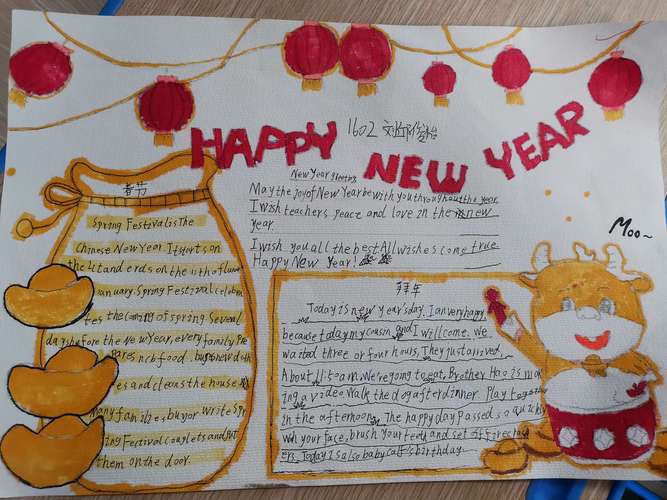 HAPPY NEW YEAR
1602
New Year greeting
May the joy of New Year be with you throughout the year
I wish teachers peace and love in the new
year.
I wish you all the best All wishes come true
Happy New Year!
Moo~
春节
Spring Festival is The
Chinese New Year. It starts on
the 1st and ends on the 15th of lunar
January. Spring Festival celebra
tes the coming of spring. Several
days before the new year, every family pre
pares rich food. buys new cloth
es and cleans the house.
Many families, buy or write Spr
ing Festival couplets and put
them on the door.
拜年
Today is new year's day. I am very happy
because today my cousin and I will come. We
waited three or four hours. They just arrived.
About 11:50 am. We're going to eat. Brother Hao is mak
ing a video. Walk the dog after dinner. Play together
in the afternoon. The happy day passed so quickly
Wash your face, brush your teeth and set off firecrack
ers. Today is also baby calf's birthday.